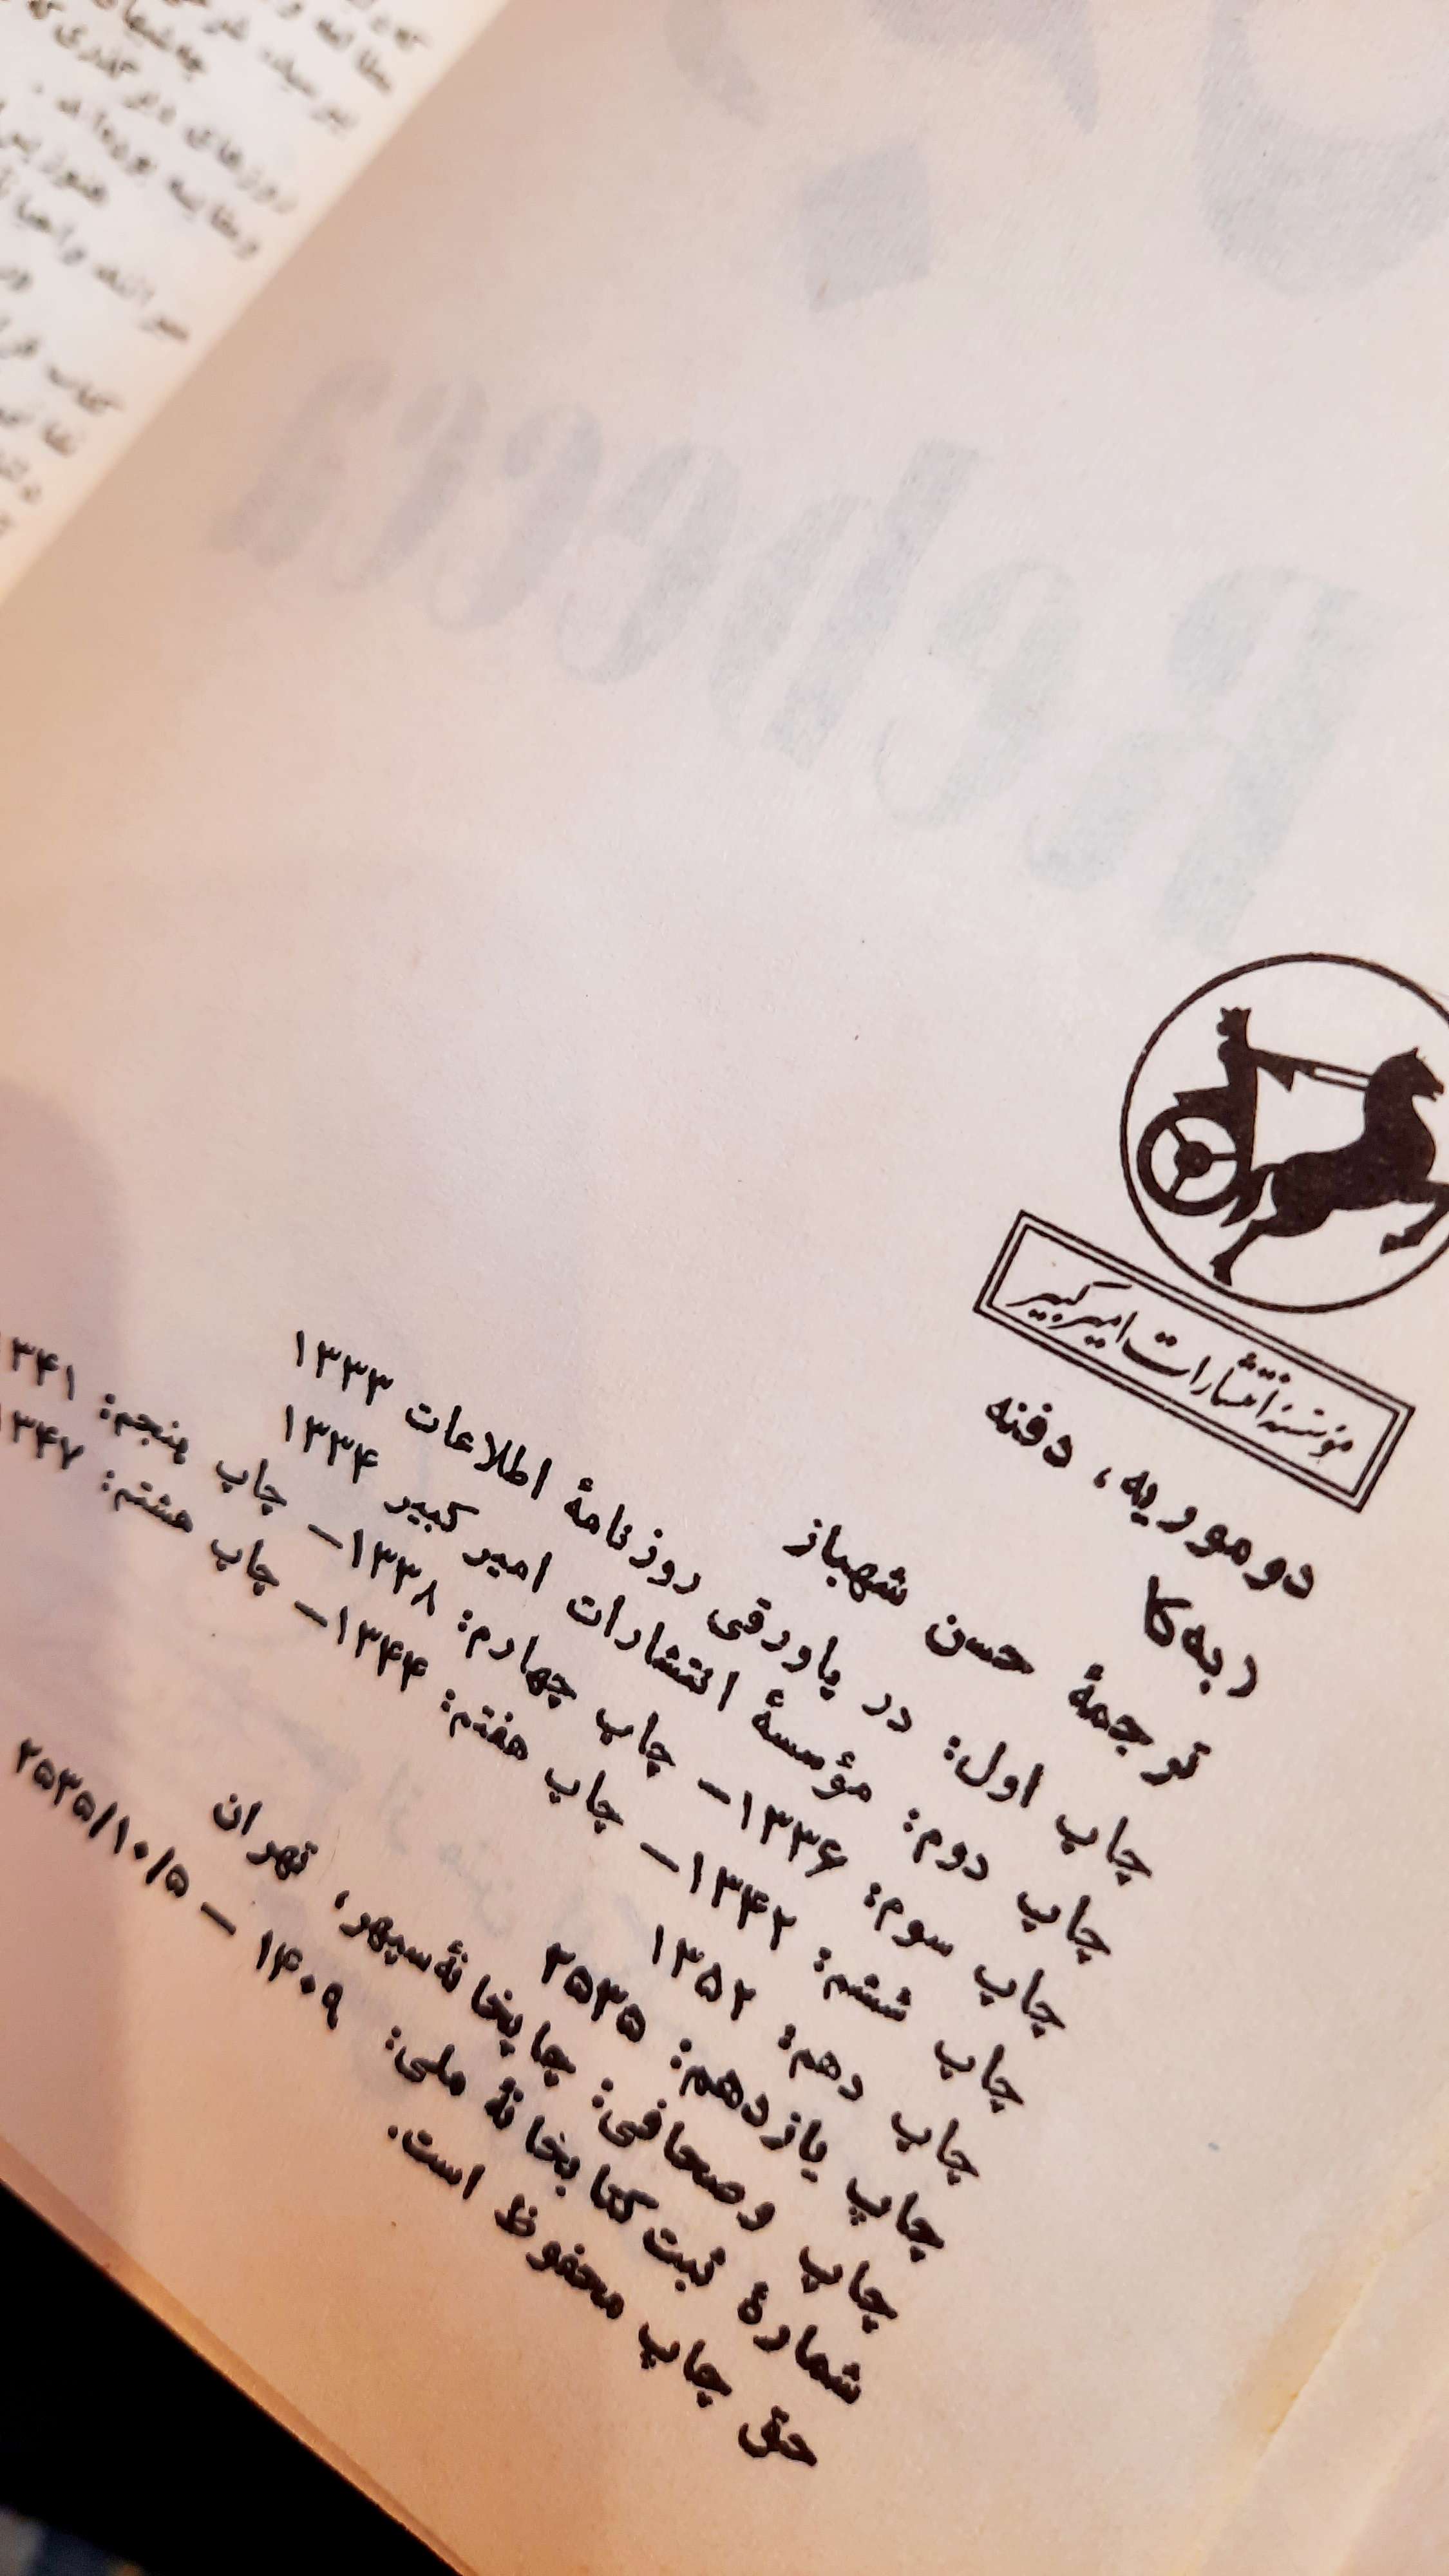 Rebecca
مؤسسهٔ انتشارات امیرکبیر
دوموریه، دفنه
ربه‌کا
ترجمهٔ حسن شهباز
چاپ اول: در پاورقی روزنامهٔ اطلاعات ۱۳۳۳
چاپ دوم: مؤسسهٔ انتشارات امیر کبیر ۱۳۳۴
چاپ سوم: ۱۳۳۶- چاپ چهارم: ۱۳۳۸- چاپ پنجم: ۱۳۴۱
چاپ ششم: ۱۳۴۲- چاپ هفتم: ۱۳۴۴- چاپ هشتم: ۱۳۴۷
چاپ دهم: ۱۳۵۲
چاپ یازدهم: ۲۵۳۵
چاپ وصحافی: چاپخانهٔ سپهر، تهران
شمارهٔ ثبت کتابخانهٔ ملی: ۱۴۰۹ - ۲۵۳۵/۱۰/۵
حق چاپ محفوظ است.